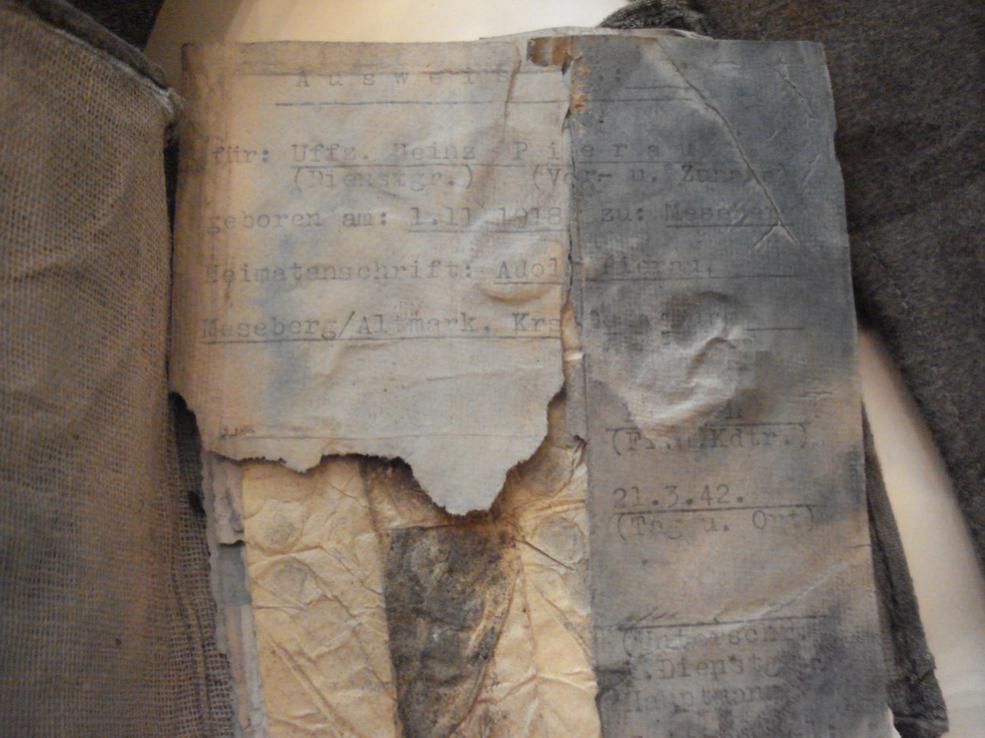 Ausweis
für: Uffz. Heinz Pierau
(Dienstgr.) (Vor- u. Zuname)
geboren am: 1.11.1918 zu: Meseberg
Heimatanschrift: Adolf Pierau,
Meseberg/Altmark, Krs.
(Flug.Kdtr.)
21.3.42.
(Tag u. Ort)
(Unterschr.
u.Dienstgr.
Hauptmann